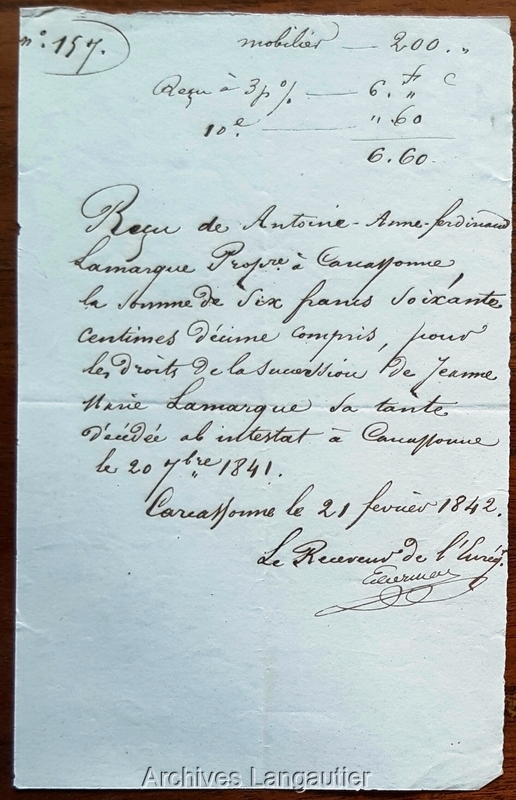 n.° 157.
mobilier — 200. "
f c
Reçu à 3 p% — 6. "
10.e — " . 60
6. 60.
Reçu de Antoine-Anne-ferdinand
Lamarque Propre. à Carcassonne,
la somme de Six francs Soixante
centimes décime compris, pour
les droits de la succession de Jeanne
Marie Lamarque sa tante
décédée ab intestat à Carcassonne
le 20 7bre 1841.
Carcassonne le 21 fevrier 1842.
Le Receveur de l'Enreg.t
Archives Langautier